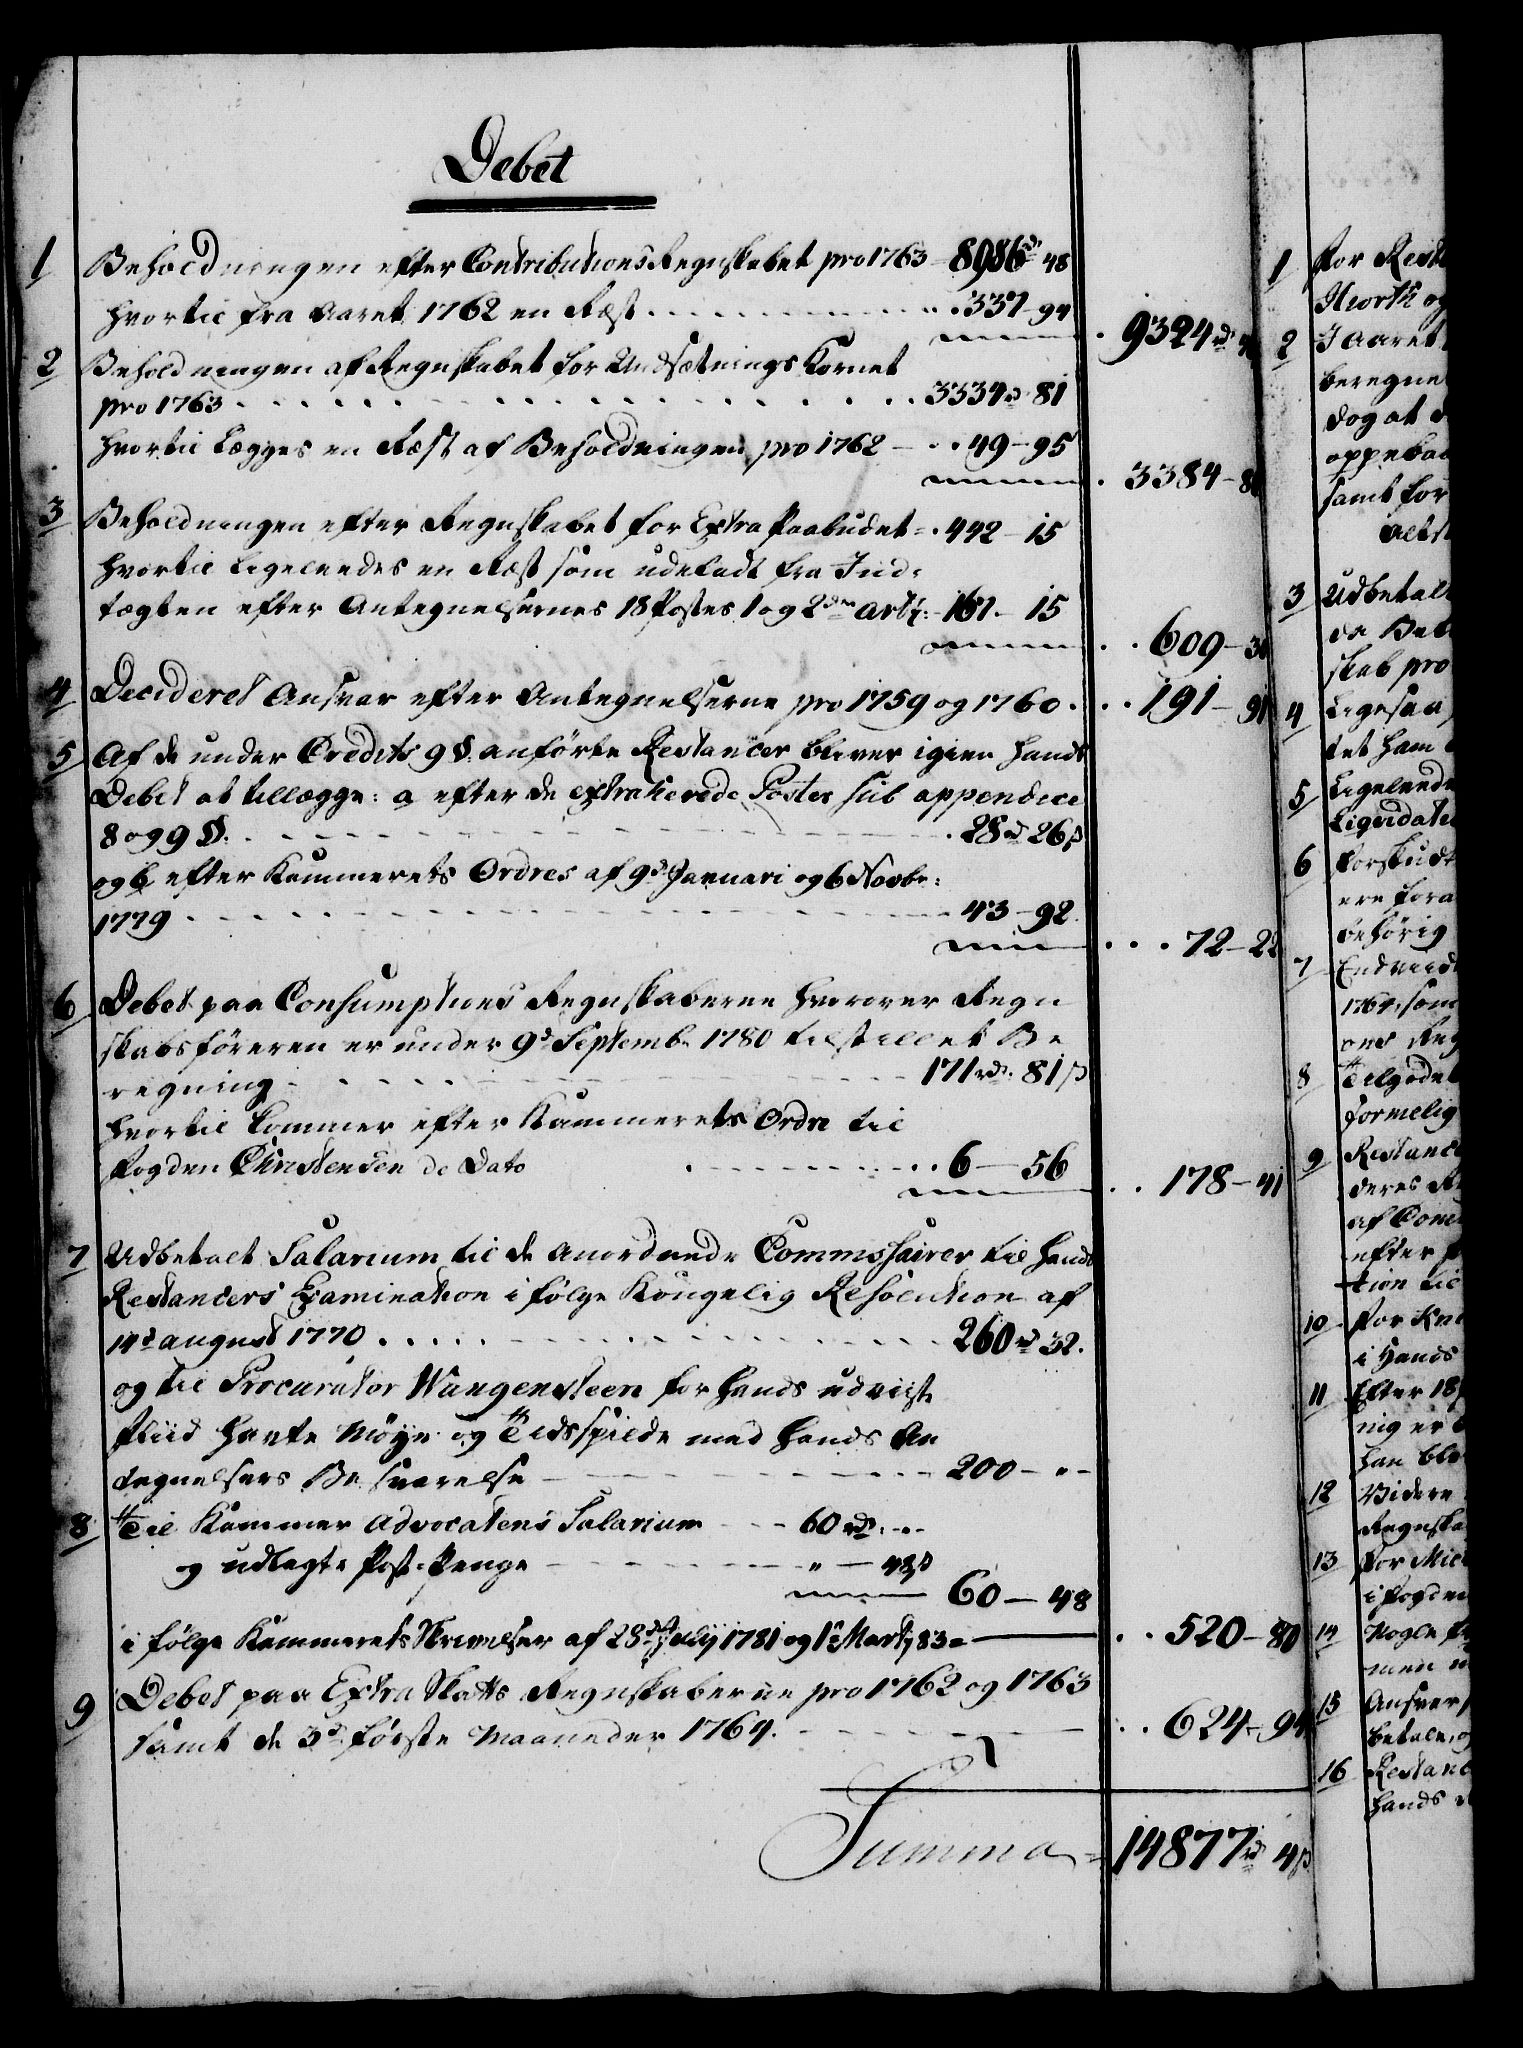 Debet
1 Beholdningen efter Contributions Regnskabet pro 1763 - 8986 rd 48
hvortil fra Aaret 1762 en Ræst . . . . . 337 - 94
9324 rd 46
2 Beholdningen af Regnskabet for Undsætnings Kornet
pro 1763 . . . . . 3334 rd 81
hvortil lægges en Ræst af Beholdningen pro 1762 - . . 49 - 95
3384 - 80
3 Beholdningen efter Regnskabet for Extra Paabudet - . 442 - 15
hvortil ligeleedes en Ræst som udeladt fra Ind-
tægten efter Antegnelsernes 18 Postes 1 og 2den Art: - 167 - 15
609 - 30
4 Decideret Ansvar efter Antegnelserne pro 1759 og 1760 . . . 191 - 91
5 Af de under Credits 9 §. anførte Restancer bliver igien hands
Debet at tillægge: a efter de extraherede Poster sub appendice
8 og 9 §. . . . . . 28 rd 26 s
og b efter Kammerets Ordres af 9d Januari og 6 Novbr:
1779 . . . . . 43 - 92
72 - 22
6 Debet paa Consumptions Regnskaberne hvorover Regn
skabsføreren er under 9d Septemb. 1780 tilstillet Be
regning . . . . . 171 rd. 81 s
hvortil kommer efter Kammerets Ordre til
Fogden Christensen de Dato . . . . . 6 - 56
178 - 41
7 Udbetalt Salarium til de anordnede Commissairer til hands
Restancers Examination i følge Kongelig Resolution af
14d august 1770 . . . . . 260 rd 32.
og til Procurator Wangensteen for hands udviiste
Fliid havte Møye og Tidsspilde med hands An
tegnelsers Besvarelse - - - 200 - " -
8 Til Kammer Advocatens Salarium - - - 60 rd. - -
og udlagte Post-Penge - - - " - 48 s
60 - 48
i følge Kammerets Skrivelser af 28de Julij 1781 og 1te Martj 83 -
520 - 80
9 Debet paa Extra Skatts Regnskaberne pro 1762 og 1763
samt de 3de første Maaneder 1764. - - - 624 - 94
Summa - 14877 rd 4 s
1 For Rest
Hiorth og
2 I Aaret
beregne
dog at d
oppebaa
samt for
alt
3 Udbetalt
da Bet
skab pro
4 Ligesaa
tet ham
5 Ligeleede
Liqvidatio
6 Forskudt
ere fora
behørig
7 Endviid
1764, som
ons Reg
8 Tilgodet
formelig
9 Restance
deres R
af Com
efter
tion til
10 For Kn
i hands
11 Efter 18
nig er
han ble
12 Videre
Regnska
13 For Mic
i Fogde
14 Nogle
men
15 Ansvar
betale, o
16 Restanc
hands